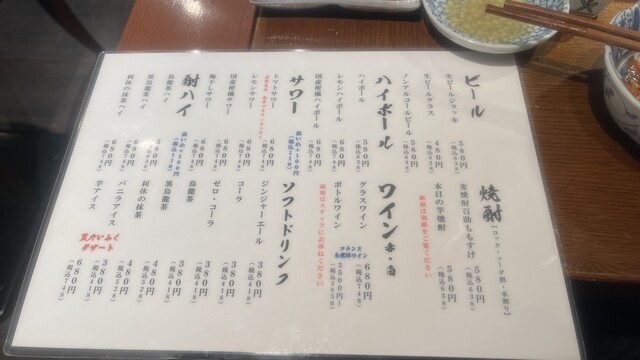 ビール
生ビールジョッキ 580円(税込638)
生ビールグラス 480円(税込528)
ノンアルコールビール 580円(税込638)
ハイボール
ハイボール 580円(税込638)
レモンハイボール 680円(税込748)
国産柑橘ハイボール 680円(税込748)
濃いめ+100円(税込110)
サワー
トマトサワー 680円(税込748)
レモンサワー 680円(税込748)
国産柑橘サワー 680円(税込748)
梅干しサワー 680円(税込748)
濃いめ+100円(税込110)
酎ハイ
烏龍茶ハイ
黒烏龍茶ハイ
利休の抹茶ハイ 680円(税込748)
焼酎[ロック・ソーダ割・水割り]
麦焼酎百助ももすけ 580円(税込638)
本日の芋焼酎 580円(税込638)
銘柄は別紙をご覧ください
ワイン 赤・白
グラスワイン 680円(税込748)
ボトルワイン 3500円〜(税込3850)
フランス自然派ワイン
銘柄はスタッフにお尋ねください
ソフトドリンク
ジンジャーエール 380円(税込418)
コーラ 380円(税込418)
ゼロ・コーラ 380円(税込418)
烏龍茶 380円(税込418)
黒烏龍茶 480円(税込528)
利休の抹茶 480円(税込528)
バニラアイス 380円(税込418)
芋アイス
豆だいふくデザート 680円(税込748)